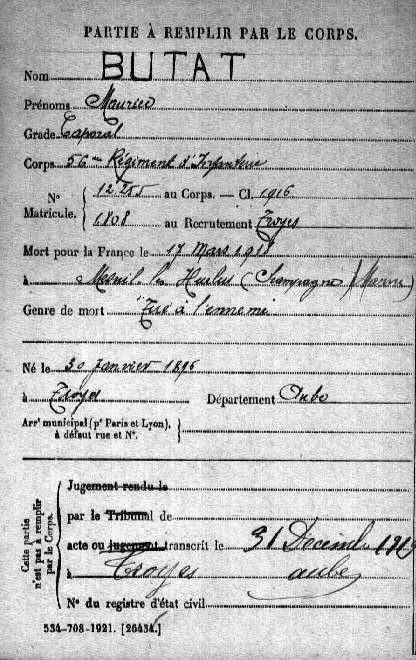 PARTIE À REMPLIR PAR LE CORPS.
Nom BUTAT
Prénoms Maurice
Grade Caporal
Corps 56me Régiment d'Infanterie
N° Matricule. 12255 au Corps. — Cl. 1916
1808 au Recrutement Troyes
Mort pour la France le 17 Mars 1918
à Mesnil les Hurlus (Champagne) (Marne)
Genre de mort "Tué à l'ennemi
Né le 30 Janvier 1896
à Troyes Département Aube
Arrt municipal (pr Paris et Lyon),
à défaut rue et N°.
Cette partie
n'est pas à remplir
par le Corps.
Jugement rendu le
par le Tribunal de
acte ou jugement transcrit le 31 Décembre 1919
à Troyes aube
N° du registre d'état civil
534-708-1921. [26434.]